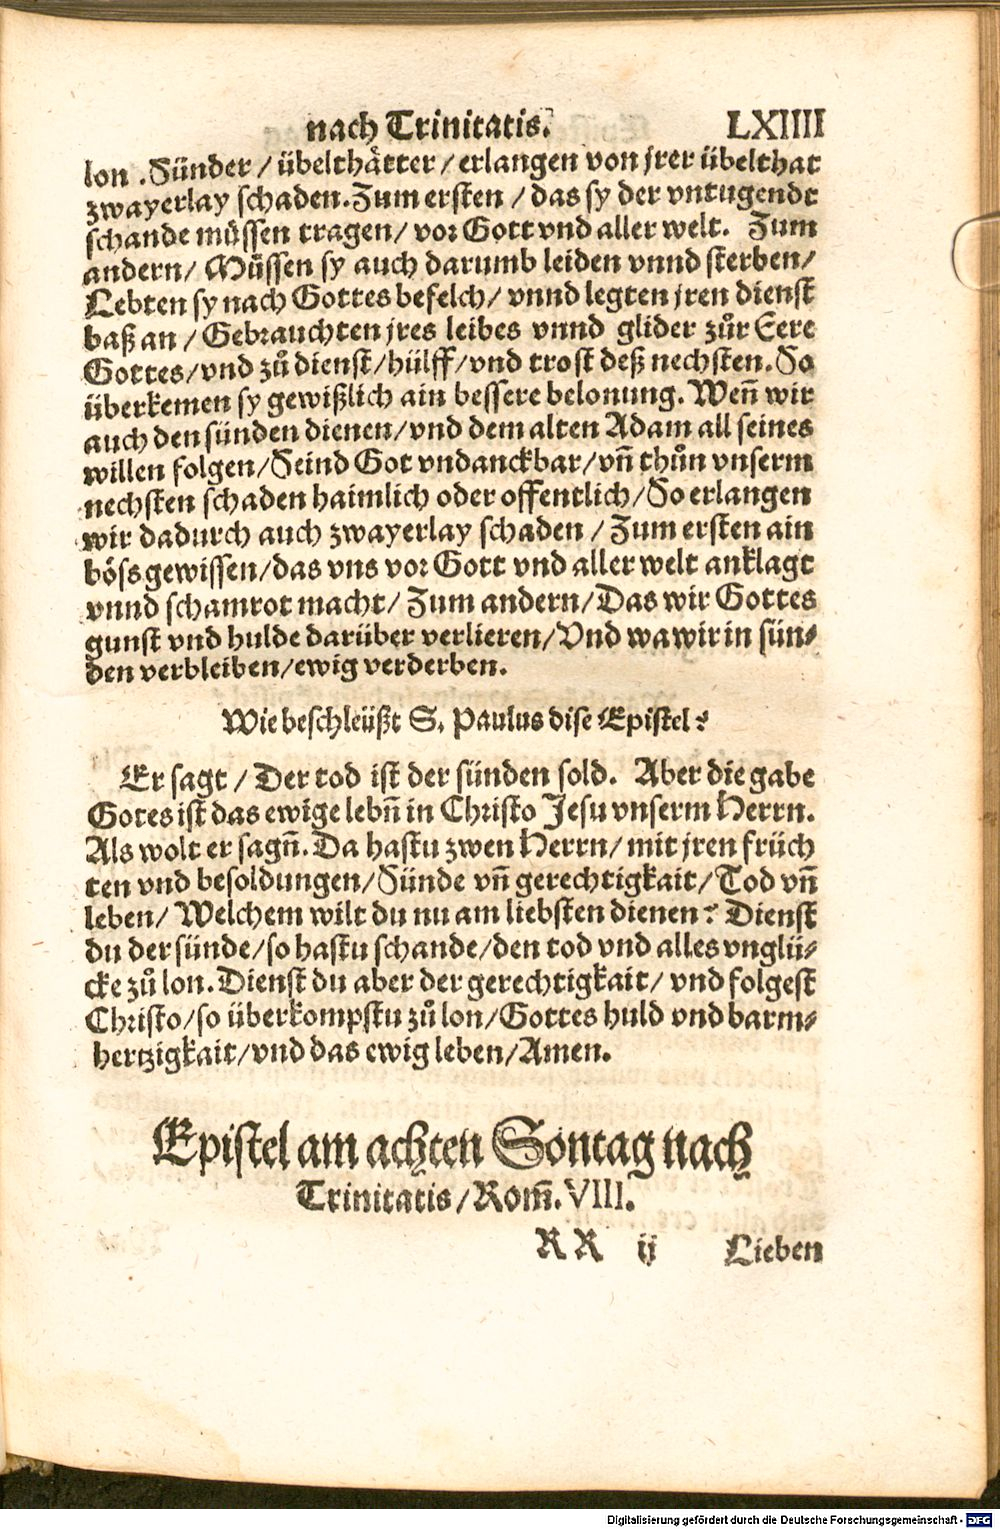 nach Trinitatis. LXIIII
lon .Sünder / übelthätter / erlangen von jrer übelthat
zwayerlay schaden. Zum ersten / das sy der vntugendt
schande müssen tragen / vor Gott vnd aller welt. Zum
andern / Müssen sy auch darumb leiden vnnd sterben /
Lebten sy nach Gottes befelch / vnnd legten jren dienst
baß an / Gebrauchten jres leibes vnnd glider zůr Eere
Gottes / vnd zů dienst / hülff / vnd trost deß nechsten. So
überkemen sy gewißlich ain bessere belonung. Weñ wir
auch den sünden dienen / vnd dem alten Adam all seines
willen folgen / Seind Got vndanckbar / vñ thůn vnserm
nechsten schaden haimlich oder offentlich / So erlangen
wir dadurch auch zwayerlay schaden / Zum ersten ain
böss gewissen / das vns vor Gott vnd aller welt anklagt
vnnd schamrot macht / Zum andern / Das wir Gottes
gunst vnd hulde darüber verlieren / Vnd wa wir in sün⸗
den verbleiben / ewig verderben.
Wie beschleüßt S. Paulus dise Epistel?
Er sagt / Der tod ist der sünden sold. Aber die gabe
Gotes ist das ewige lebñ in Christo Jesu vnserm Herrn.
Als wolt er sagñ. Da hastu zwen Herrn / mit jren früch
ten vnd besoldungen / Sünde vñ gerechtigkait / Tod vñ
leben / Welchem wilt du nu am liebsten dienen? Dienst
du der sünde / so hastu schande / den tod vnd alles vnglü⸗
cke zů lon. Dienst du aber der gerechtigkait / vnd folgest
Christo / so überkompstu zů lon / Gottes huld vnd barm⸗
hertzigkait / vnd das ewig leben / Amen.
Epistel am achten Sontag nach
Trinitatis / Rom̃. VIII.
RR ij Lieben
Digitalisierung gefördert durch die Deutsche Forschungsgemeinschaft - DFG